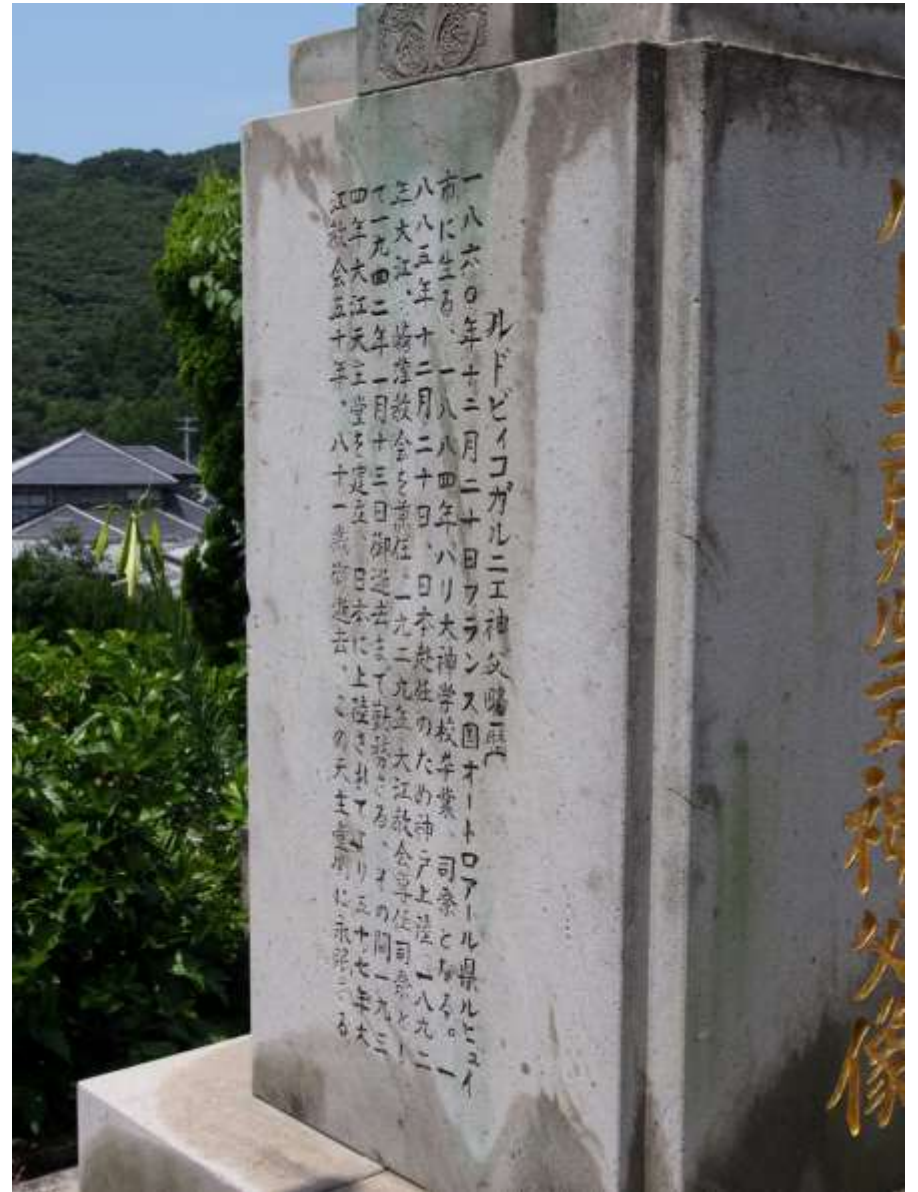 ルドビィコガルニエ神父略歴
一八六〇年十二月二十日フランス国オートロアール県ルピュイ
市に生る、一八八四年パリ大神学校卒業、司祭となる。一
八八五年十二月二十日、日本赴任のため神戸上陸、一八九二
年大江、崎津教会を兼任、一九二九年大江教会専任司祭とし
て一九四二年一月十三日御逝去まで勤務さる、その間一九三
四年大江天主堂を建立、日本に上陸されてより五十七年大
江教会五十年、八十一歳御逝去、この天主堂側に永眠さる
ガルニエ神父像